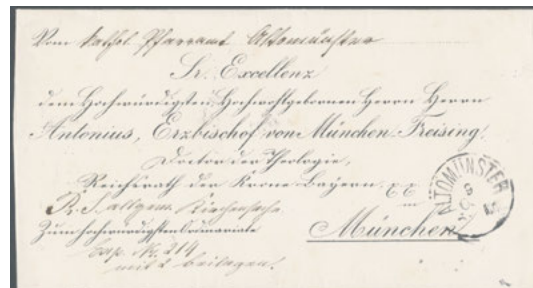 Vom kathol. Pfarramt Altomünster
Sr. Excellenz
dem Hochwürdigsten, Hochwohlgebornen Herrn Herrn
Antonius, Erzbischof von München-Freising,
Doctor der Theologie,
Reichsrath der Krone Bayern,
R. S. allgem. Kirchensache
Zum hochwürdigsten Ordinariate
München
Exp. No. 214
mit 2 Beilagen.
ALTOMÜNSTER